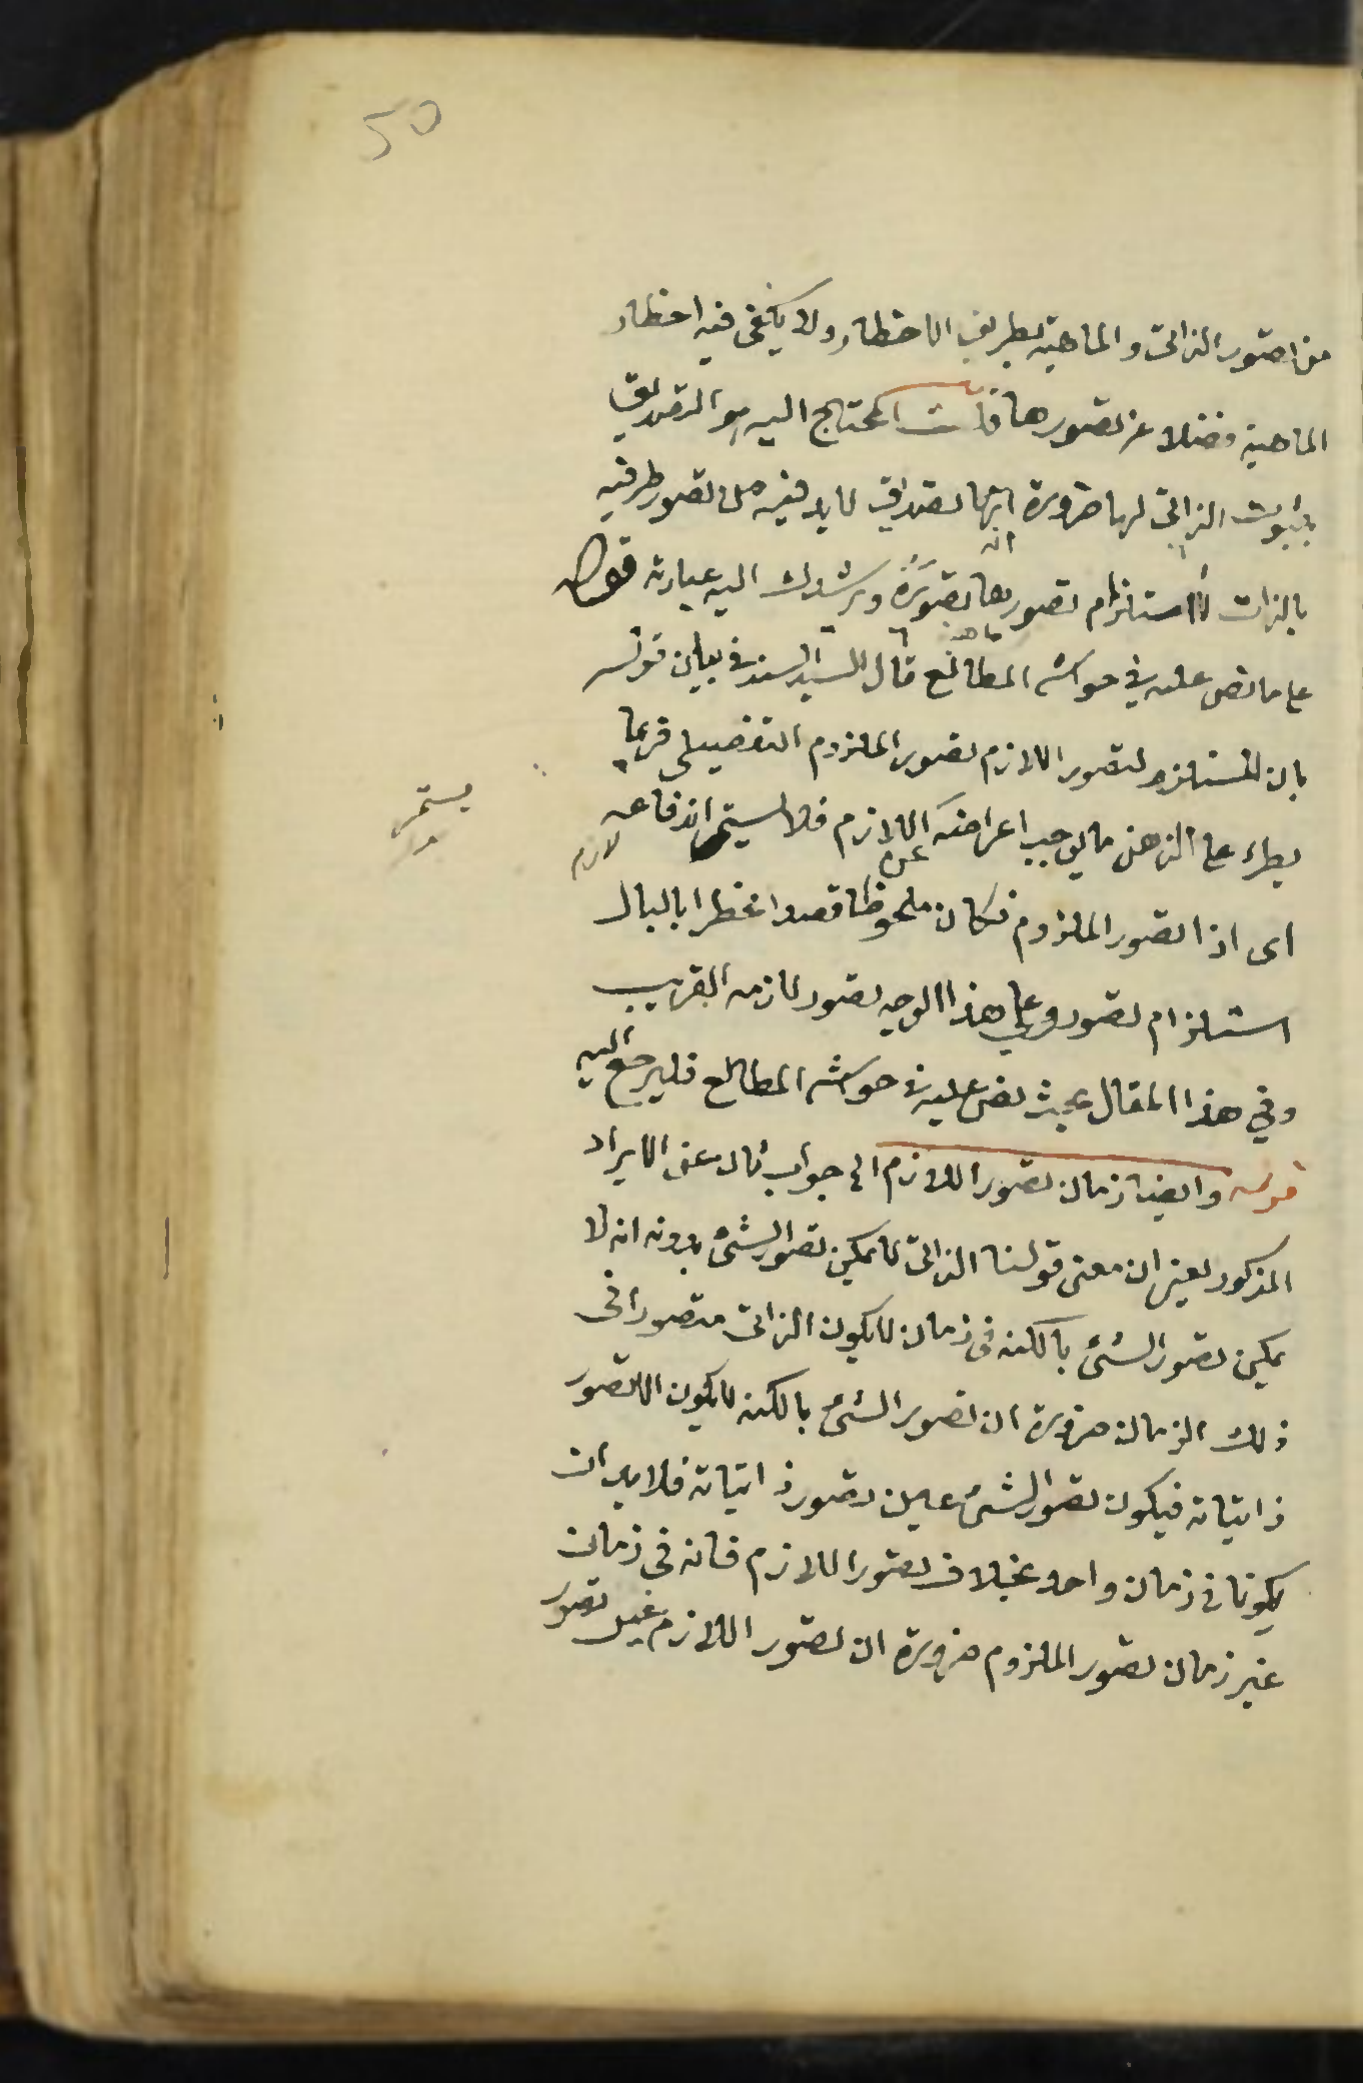 50
من تصور الذاتى والماهية بطريق الاخطار ولا يكفى فيه اخطار
الماهية فضلا عن تصورها قلت المحتاج اليه هو التصديق
بثبوت الذاتى لها ضرورة انها تصديق لا بد فيه من تصور طرفيه
بالذات لا استلزام تصورها تصوره ويرشدك اليه عبارته قوله
على ما نص عليه في حواشى المطالع قال السيد السند فى بيان قوله
بان المستلزم لتصور اللازم تصور الملزوم التفصيلى فربما
يطراء على الذهن ما يوجب اعراضه اللازم فلا يستمر اندفاعه
عن
لازم
يستمر
اى اذا تصور الملزوم فكان ملحوظا قصدا مخطرا بالبال
استلزام تصوره على هذا الوجه تصور لازمه القريب
وفي هذا المقال بحث نص عليه فى حواشى المطالع فليرجع اليه
قوله وايضا زمان تصور اللازم الى جواب ثان عن الايراد
المذكور يعنى ان معنى قولنا الذاتى لا يمكن تصور الشئ بدونه انه لا
يمكن تصور الشئ بالكنه فى زمان لا يكون الذاتى متصورا فى
ذلك الزمان ضرورة ان تصور الشئ بالكنه لا يكون الا تصور
ذاتياته فيكون تصور الشئ عين تصور ذاتياته فلا بد ان
يكونا فى زمان واحد بخلاف تصور اللازم فانه فى زمان
غير زمان تصور الملزوم ضرورة ان تصور اللازم غير تصور